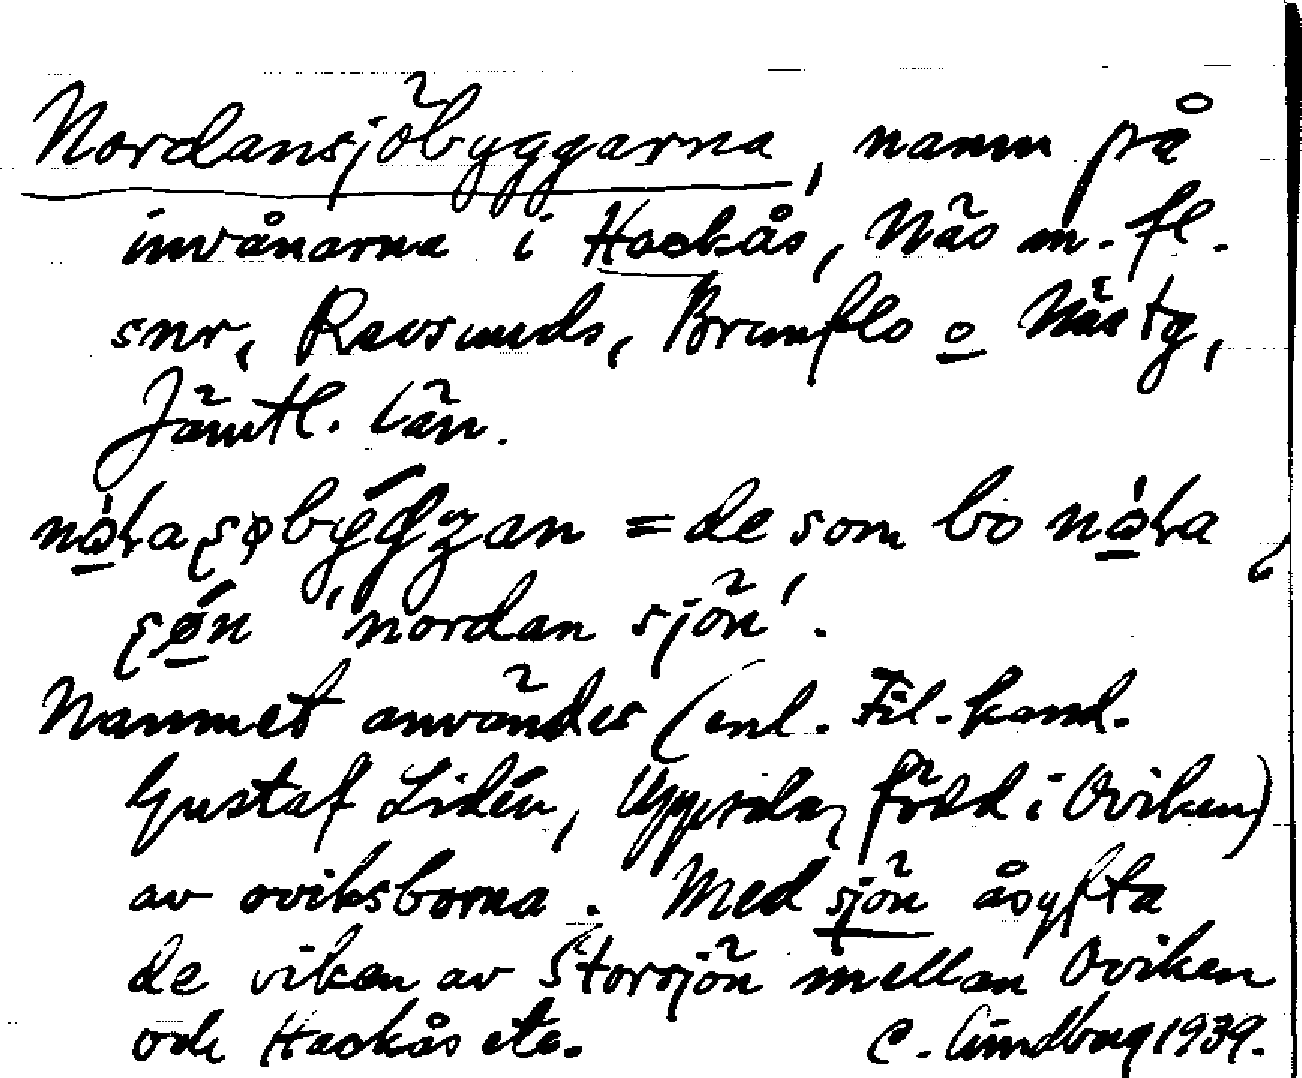 Nordansjöbyggarna, namn på
invånarna i Hackås, Näs m. fl.
snr, Revsunds, Brunflo o Näs tg,
Jämtl. län.
= de som bo
'nordan sjön'.
Namnet användes (enl. Fil. kand.
Gustaf Lidén, Uppsala, född i Oviken)
av oviksborna. Med sjön åsyfta
de viken av Storsjön mellan Oviken
och Hackås etc. C. Lindberg 1939.